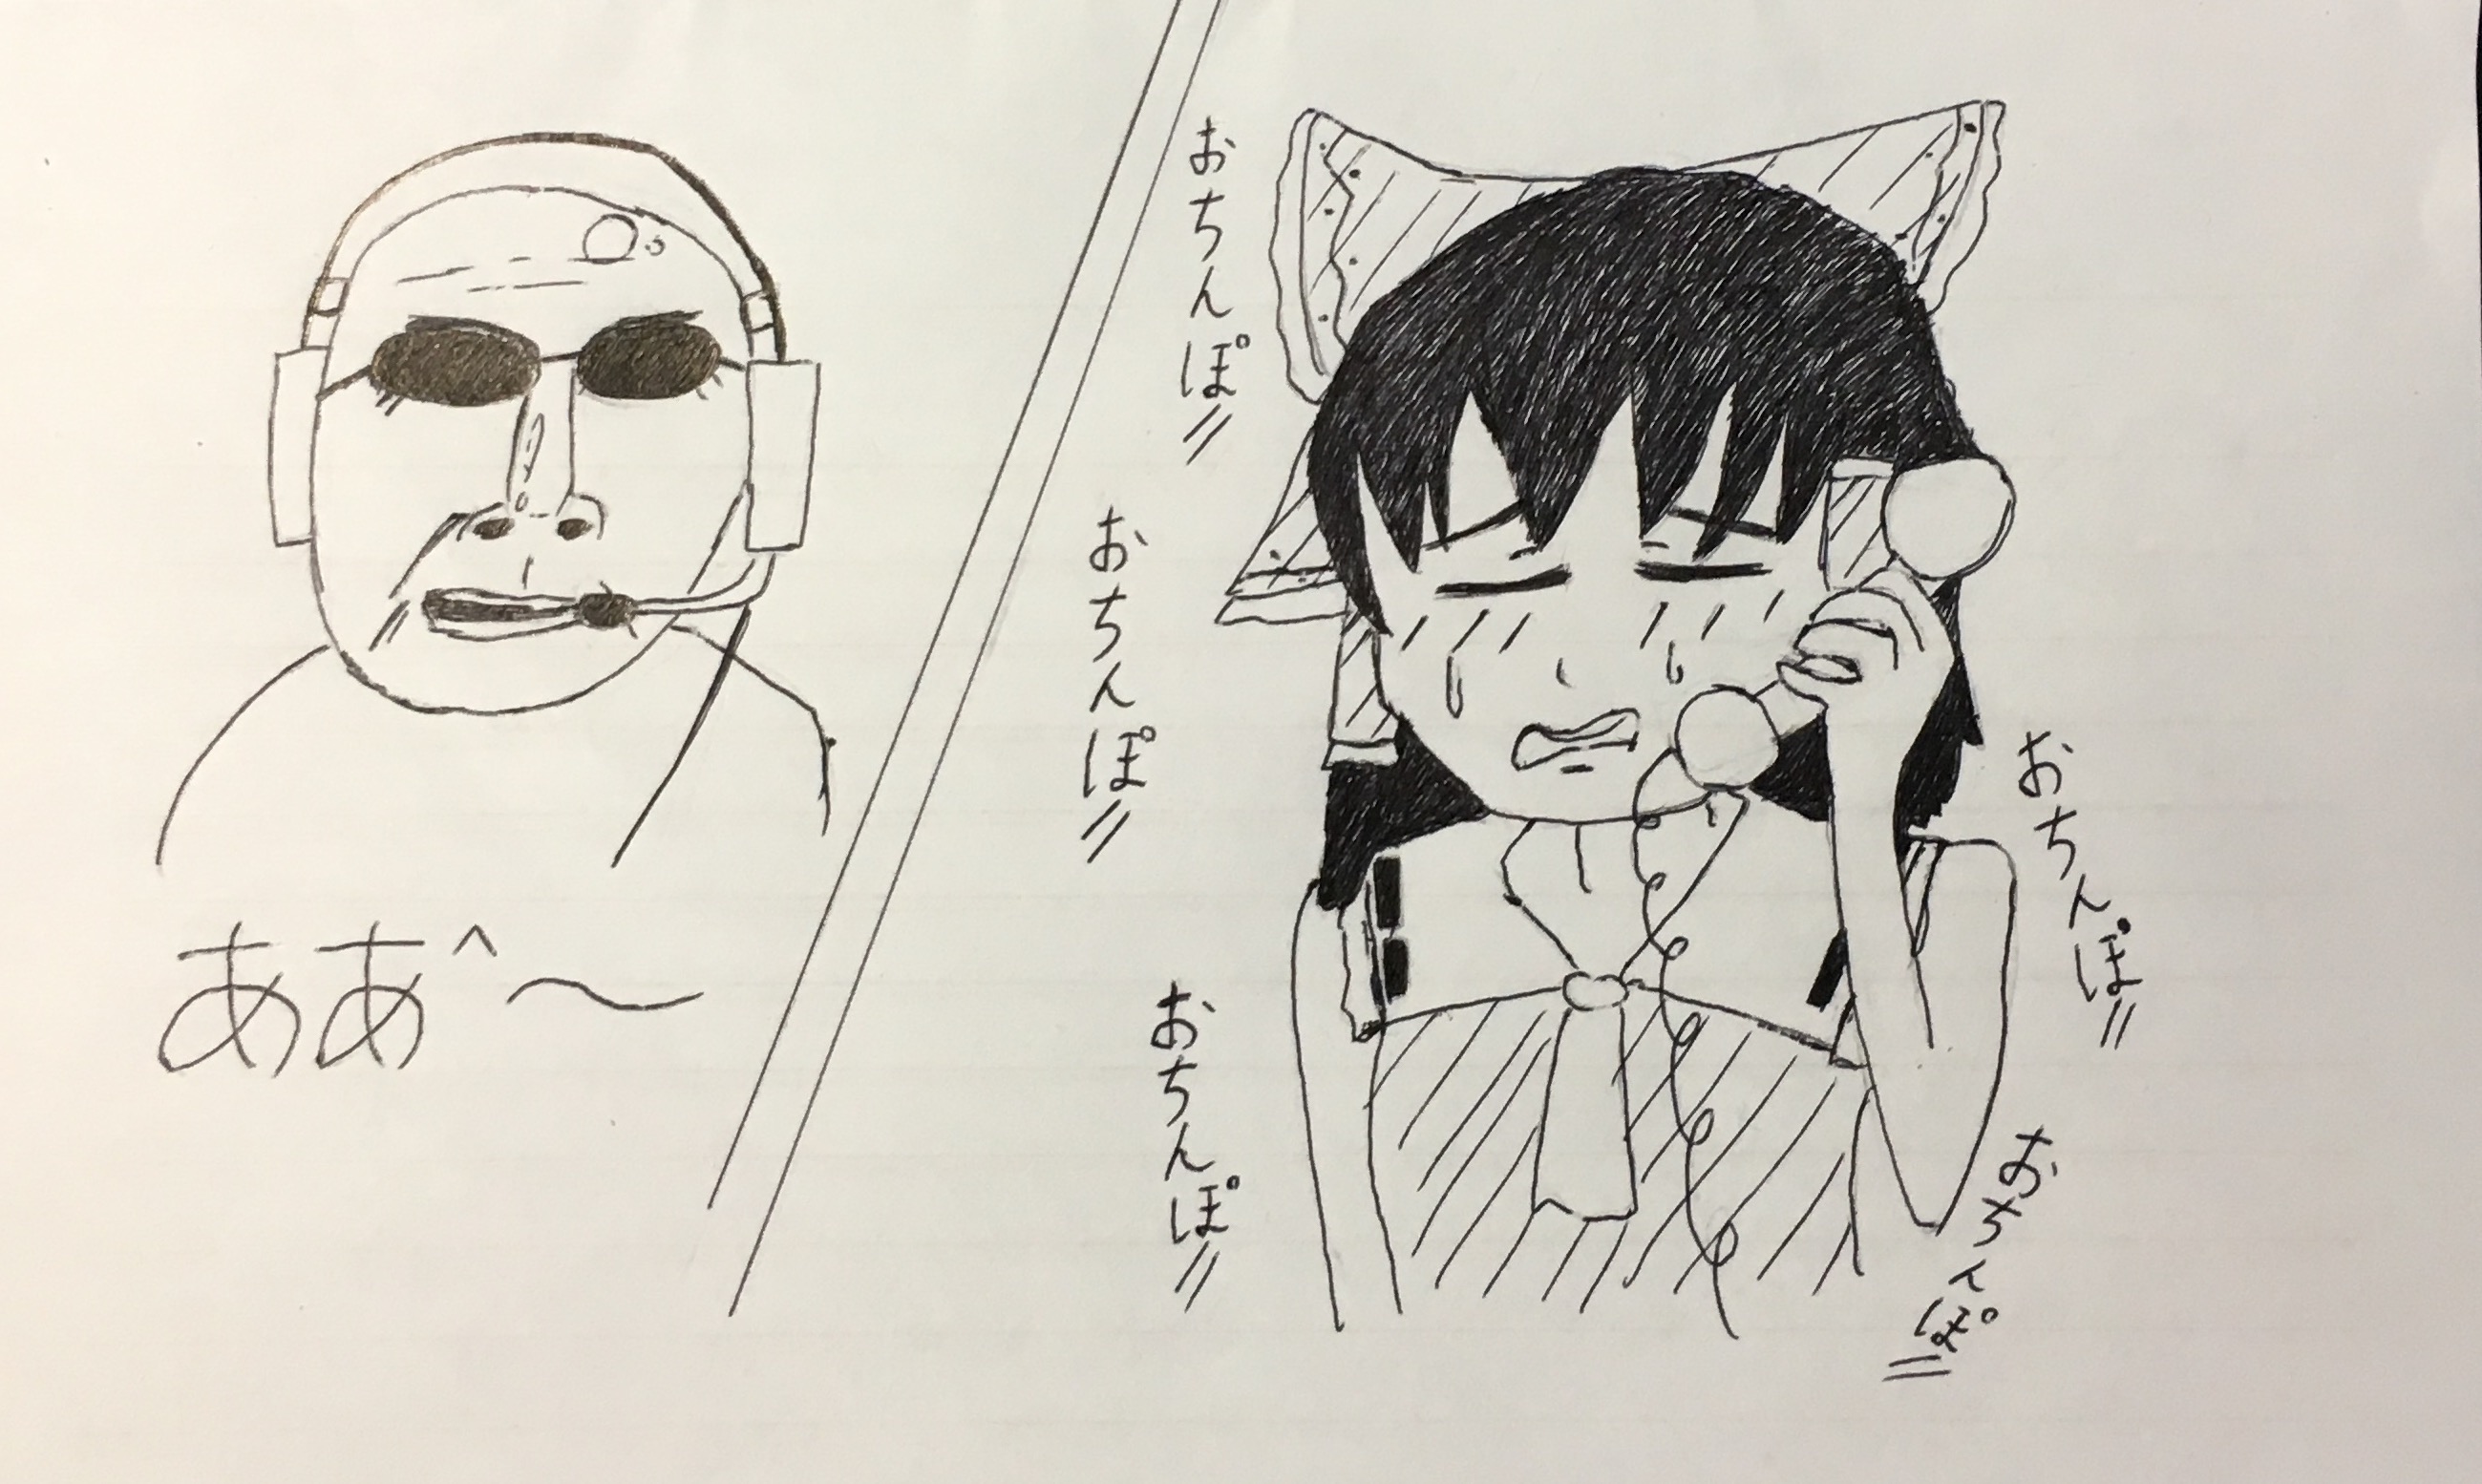 おちんぽ〃
おちんぽ〃
おちんぽ〃
おちんぽ〃
おちんぽ〃
ああ^〜